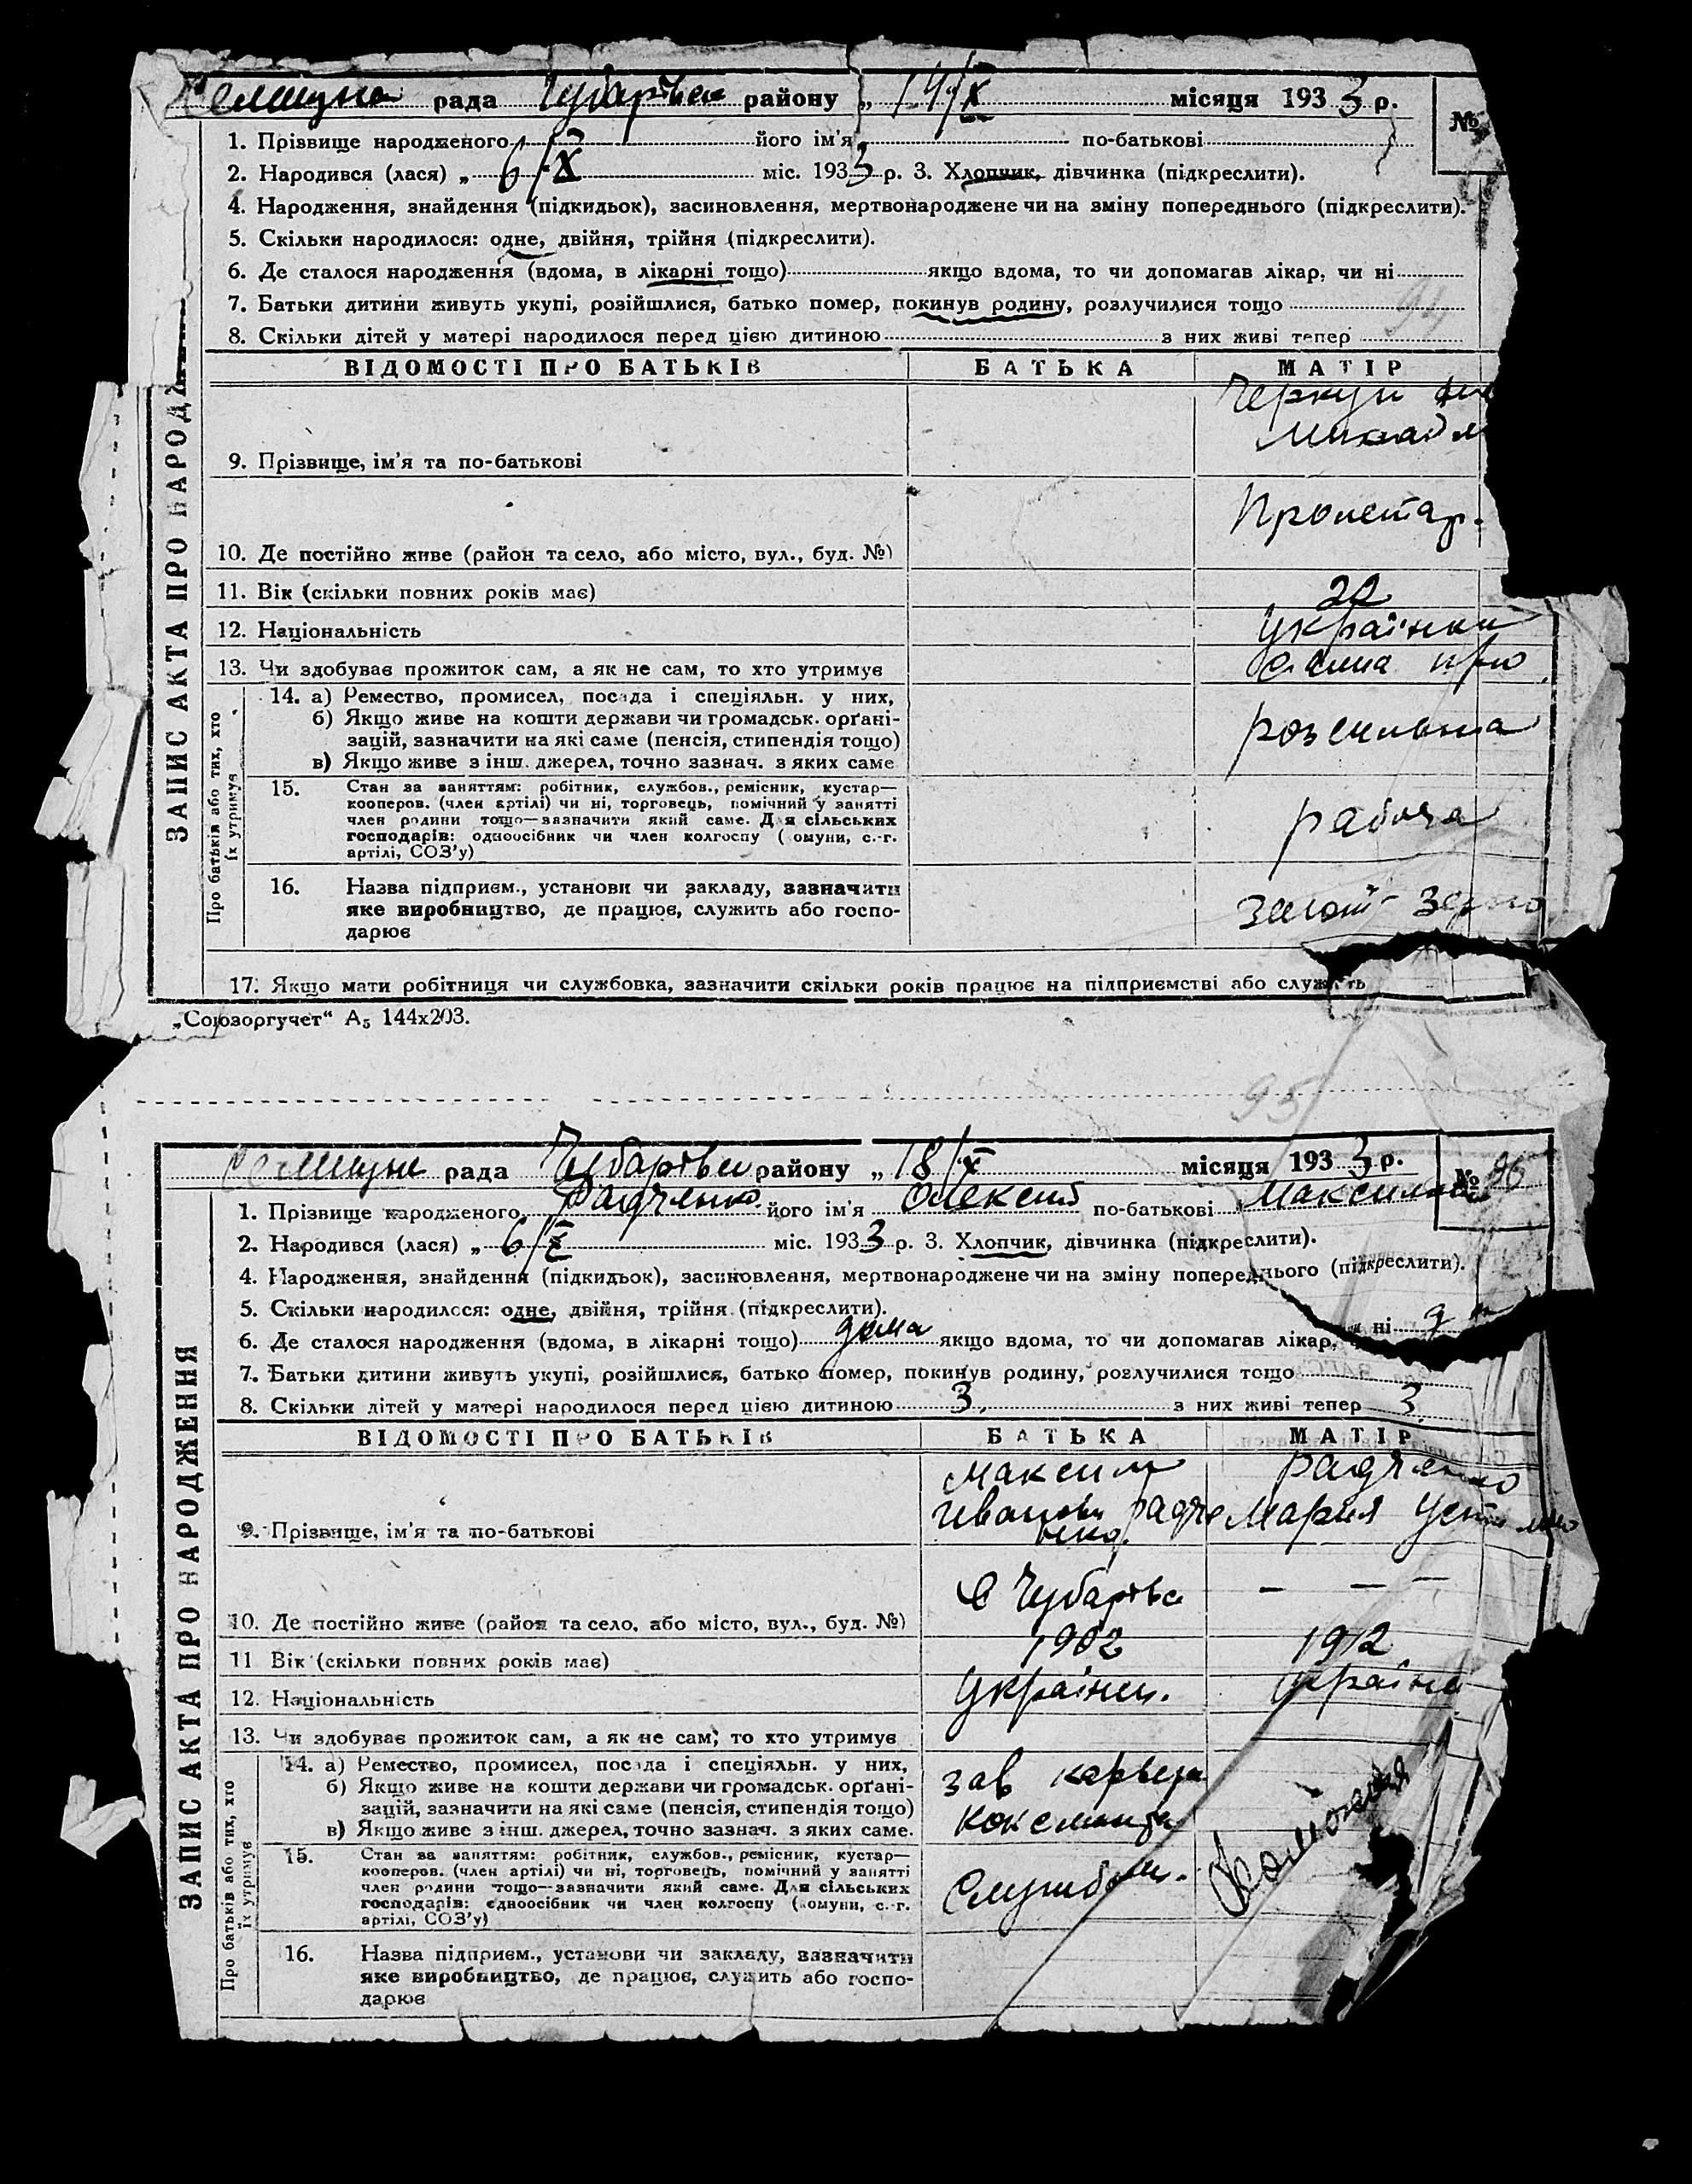 Селищна рада Чубарівськ району „ 14/X місяця 1933 р.
№
1. Прізвище народженого його ім'я по-батькові
2. Народився (лася) „ 6/X міс. 1933 р. 3. Хлопчик, дівчинка (підкреслити).
4. Народження, знайдення (підкидьок), засиновлення, мертвонароджене чи на зміну попереднього (підкреслити).
5. Скільки народилося: одне, двійня, трійня (підкреслити).
6. Де сталося народження (вдома, в лікарні тощо) якщо вдома, то чи допомагав лікар, чи ні
7. Батьки дитини живуть укупі, розійшлися, батько помер, покинув родину, розлучилися тощо
8. Скільки дітей у матері народилося перед цією дитиною з них живі тепер
ЗАПИС АКТА ПРО НАРОДЖ
ВІДОМОСТІ ПРО БАТЬКІВ БАТЬКА МАТІР
9. Прізвище, ім'я та по-батькові
Пролетар.
10. Де постійно живе (район та село, або місто, вул., буд. №)
11. Вік (скільки повних років має) 22
12. Національність Українка
13. Чи здобуває прожиток сам, а як не сам, то хто утримує сама
Про батьків або тих, хто їх утримує
14. а) Ремество, промисел, посада і спеціяльн. у них,
б) Якщо живе на кошти держави чи громадськ. орґані-
зацій, зазначити на які саме (пенсія, стипендія тощо)
в) Якщо живе з інш. джерел, точно зазнач. з яких саме
розсильна
15. Стан за заняттям: робітник, службов., ремісник, кустар—
кооперов. (член артілі) чи ні, торговець, помічний у занятті
член родини тощо—зазначити який саме. Для сільських
господарів: одноосібник чи член колгоспу ( омуни, с.-г.
артілі, СОЗ'у)
рабоча
16. Назва підприєм., установи чи закладу, зазначити
яке виробництво, де працює, служить або госпо-
дарює
Загот Зерно
17. Якщо мати робітниця чи службовка, зазначити скільки років працює на підприємстві або служить
„Союзоргучет“ А5 144х203.
95
Селищна рада Чубарівськ району „ 18/X місяця 1933 р.
№ 96
1. Прізвище народженого Радченко його ім'я Олексій по-батькові Максимов
2. Народився (лася) „ 6/X міс. 1933 р. 3. Хлопчик, дівчинка (підкреслити).
4. Народження, знайдення (підкидьок), засиновлення, мертвонароджене чи на зміну попереднього (підкреслити).
5. Скільки народилося: одне, двійня, трійня (підкреслити).
6. Де сталося народження (вдома, в лікарні тощо) дома якщо вдома, то чи допомагав лікар, ні
7. Батьки дитини живуть укупі, розійшлися, батько помер, покинув родину, розлучилися тощо
8. Скільки дітей у матері народилося перед цією дитиною 3. з них живі тепер 3
ЗАПИС АКТА ПРО НАРОДЖЕННЯ
ВІДОМОСТІ ПРО БАТЬКІВ БАТЬКА МАТІР
Максим Радченко
Иванови Радче Мария
нко.
9. Прізвище, ім'я та по-батькові
С Чубарівка — — —
10. Де постійно живе (район та село, або місто, вул., буд. №)
11 Вік (скільки повних років має) 1902 1912
12. Національність Українец. україн
13. Чи здобуває прожиток сам, а як не сам, то хто утримує
Про батьків або тих, хто їх утримує
14. а) Ремество, промисел, посада і спеціяльн. у них,
б) Якщо живе на кошти держави чи громадськ. орґані-
зацій, зазначити на які саме (пенсія, стипендія тощо)
в) Якщо живе з інш. джерел, точно зазнач. з яких саме.
зав
15. Стан за заняттям: робітник, службов., ремісник, кустар—
кооперов. (член артілі) чи ні, торговець, помічний у занятті
член родини тощо—зазначити який саме. Для сільських
господарів: єдноосібник чи член колгоспу (комуни, с.-г.
артілі, СОЗ'у)
Службов.
Домохозя
16. Назва підприєм., установи чи закладу, зазначити
яке виробництво, де працює, служить або госпо-
дарює